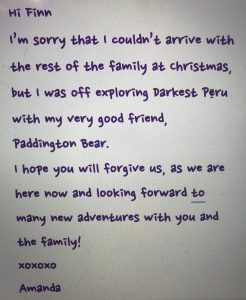 Hi Finn
I'm sorry that I couldn't arrive with
the rest of the family at Christmas,
but I was off exploring Darkest Peru
with my very good friend,
Paddington Bear.
I hope you will forgive us, as we are
here now and looking forward to
many new adventures with you and
the family!
xoxoxo
Amanda